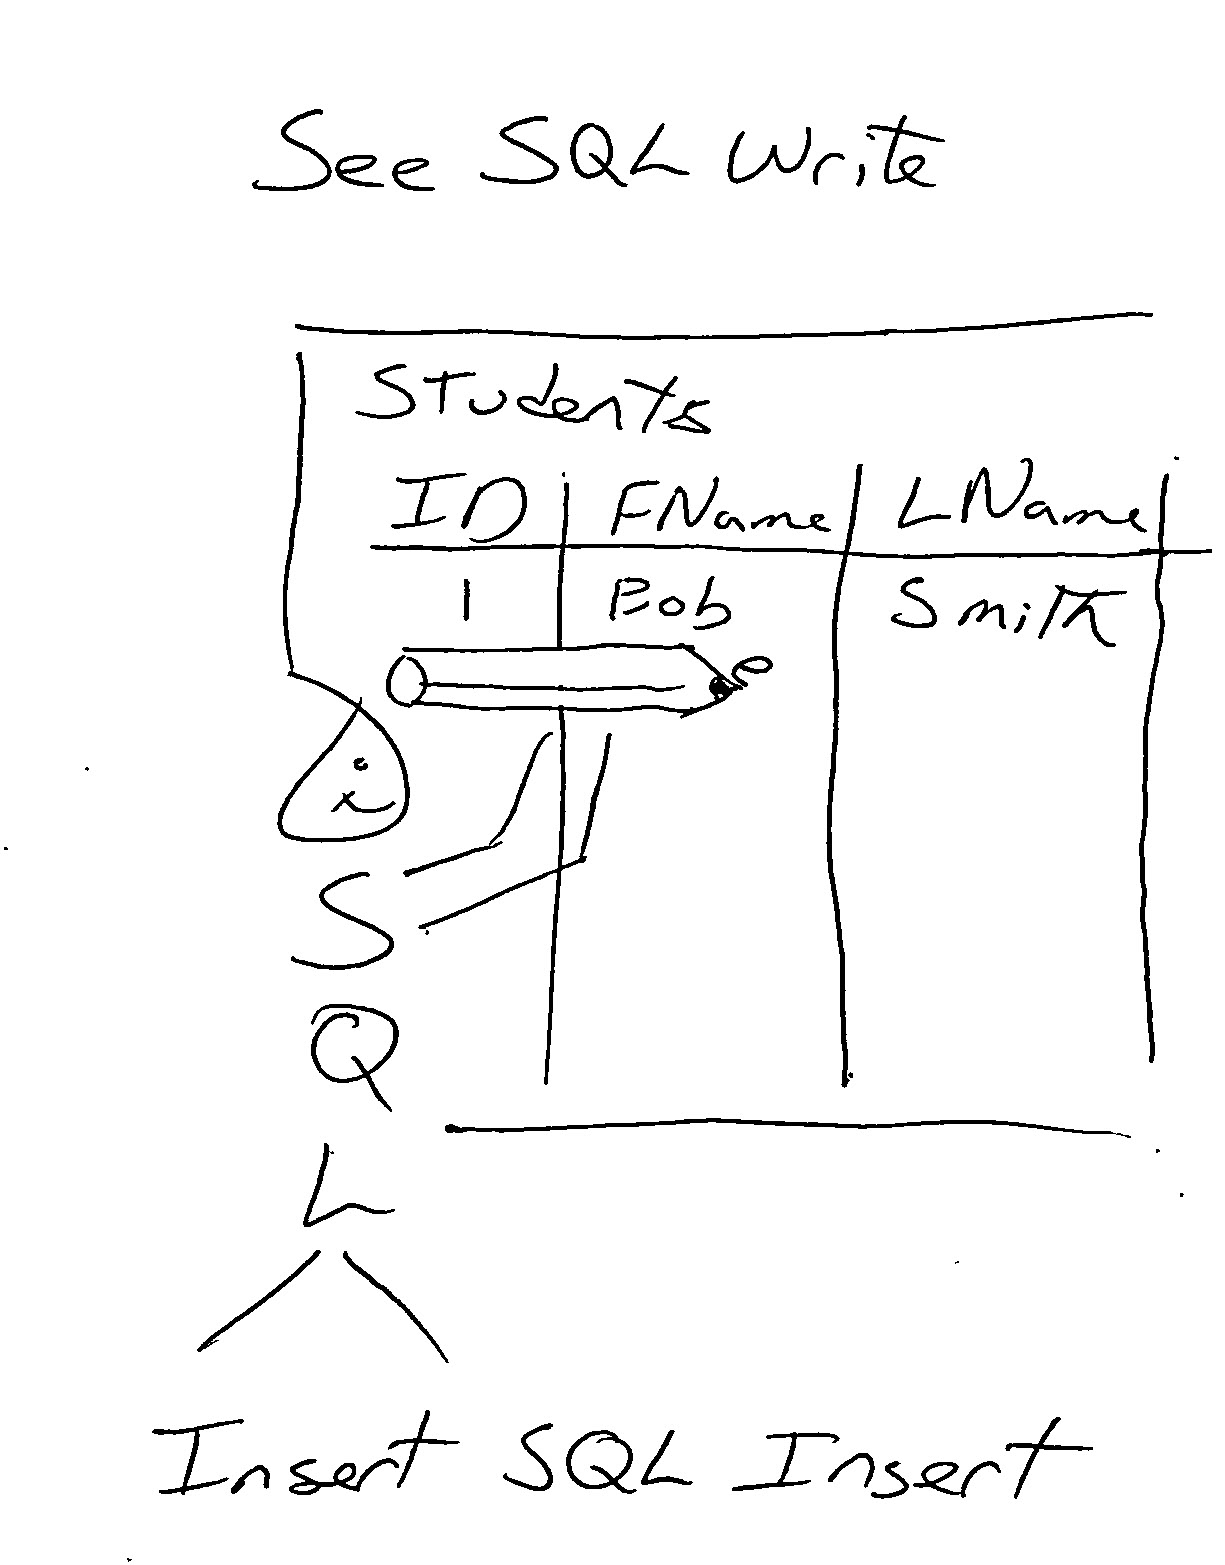 See SQL Write
Students
ID FName LName
1 Bob Smith
e
S
Q
L
Insert SQL Insert